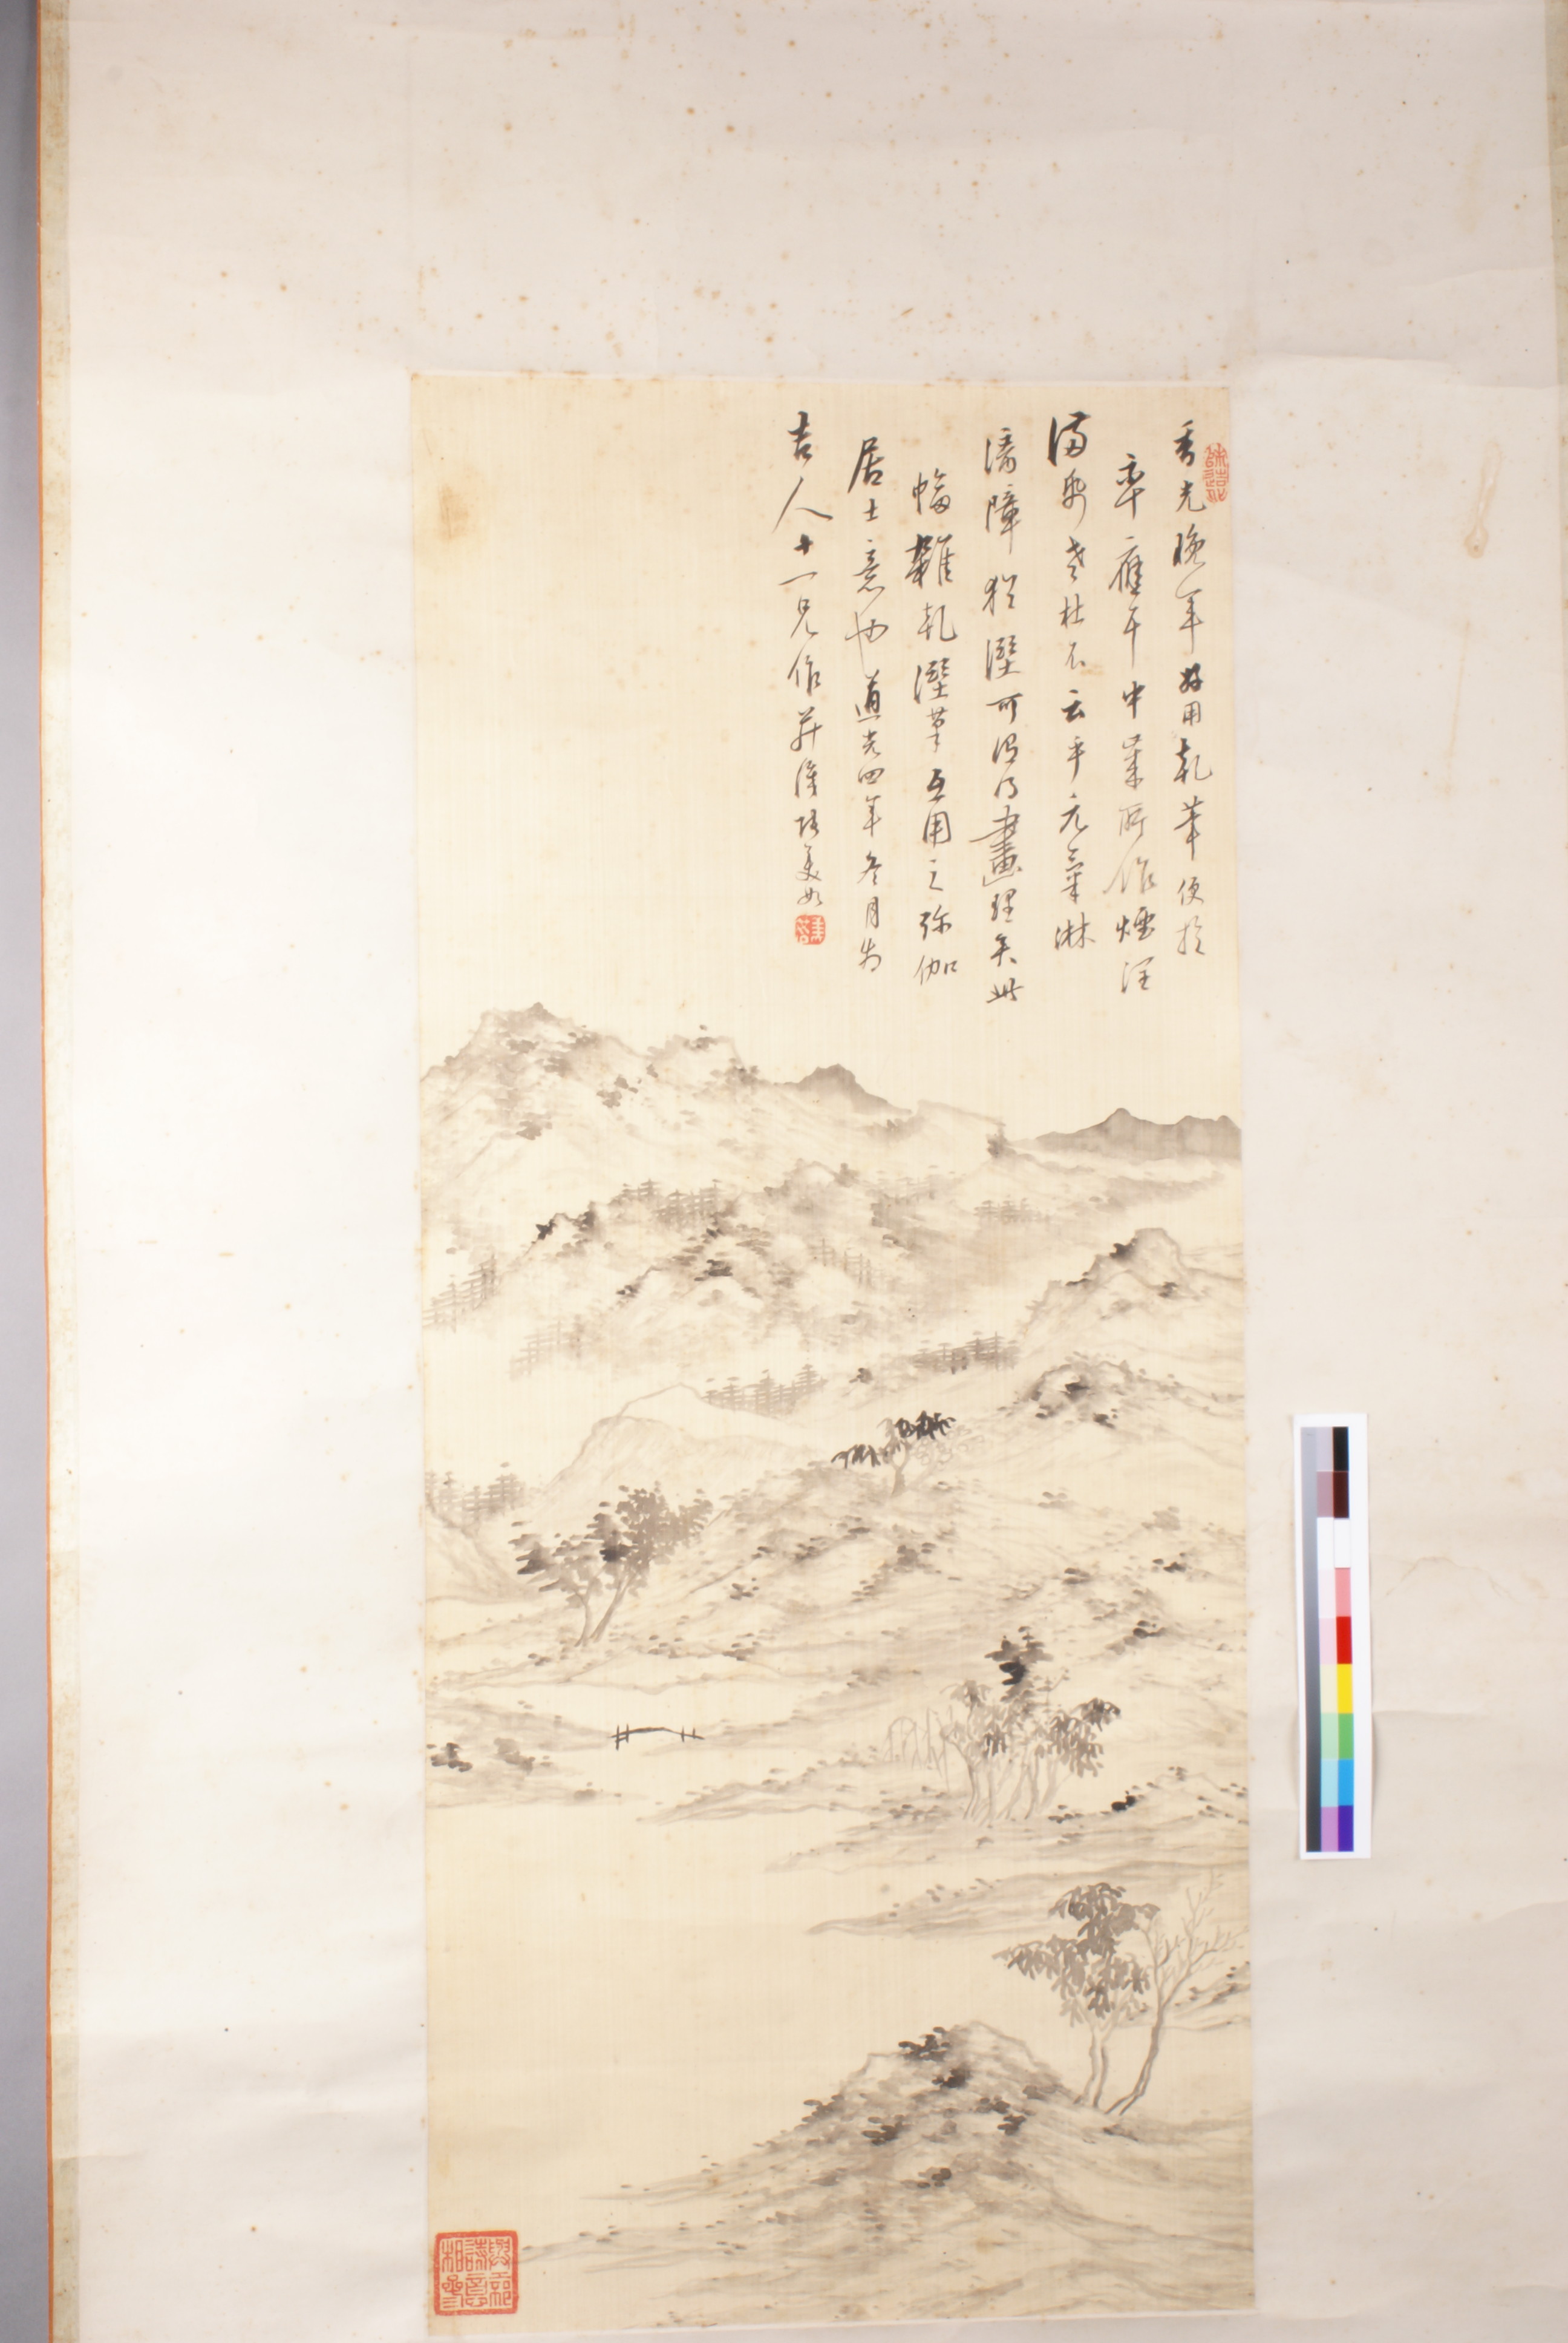 香光晚年好用乾筆便於
率應耳中葉所作煙
滿老杜不云乎元氣淋
漓障猶溼可謂得畫理矣此
幅雜乾溼筆互用之弥伽
居士意也道光四年冬月為
吉人十一兄作并識張美如